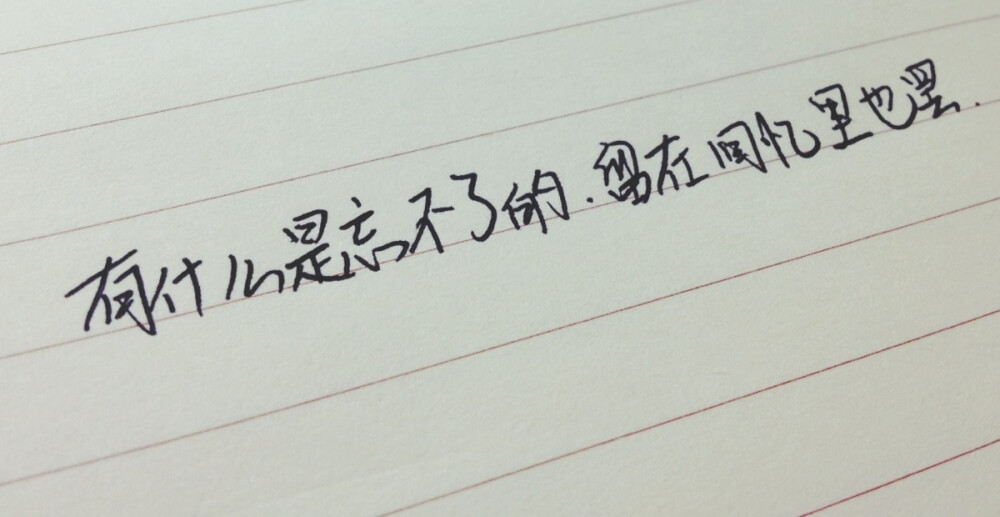 有什么是忘不了的.留在回忆里也罢.